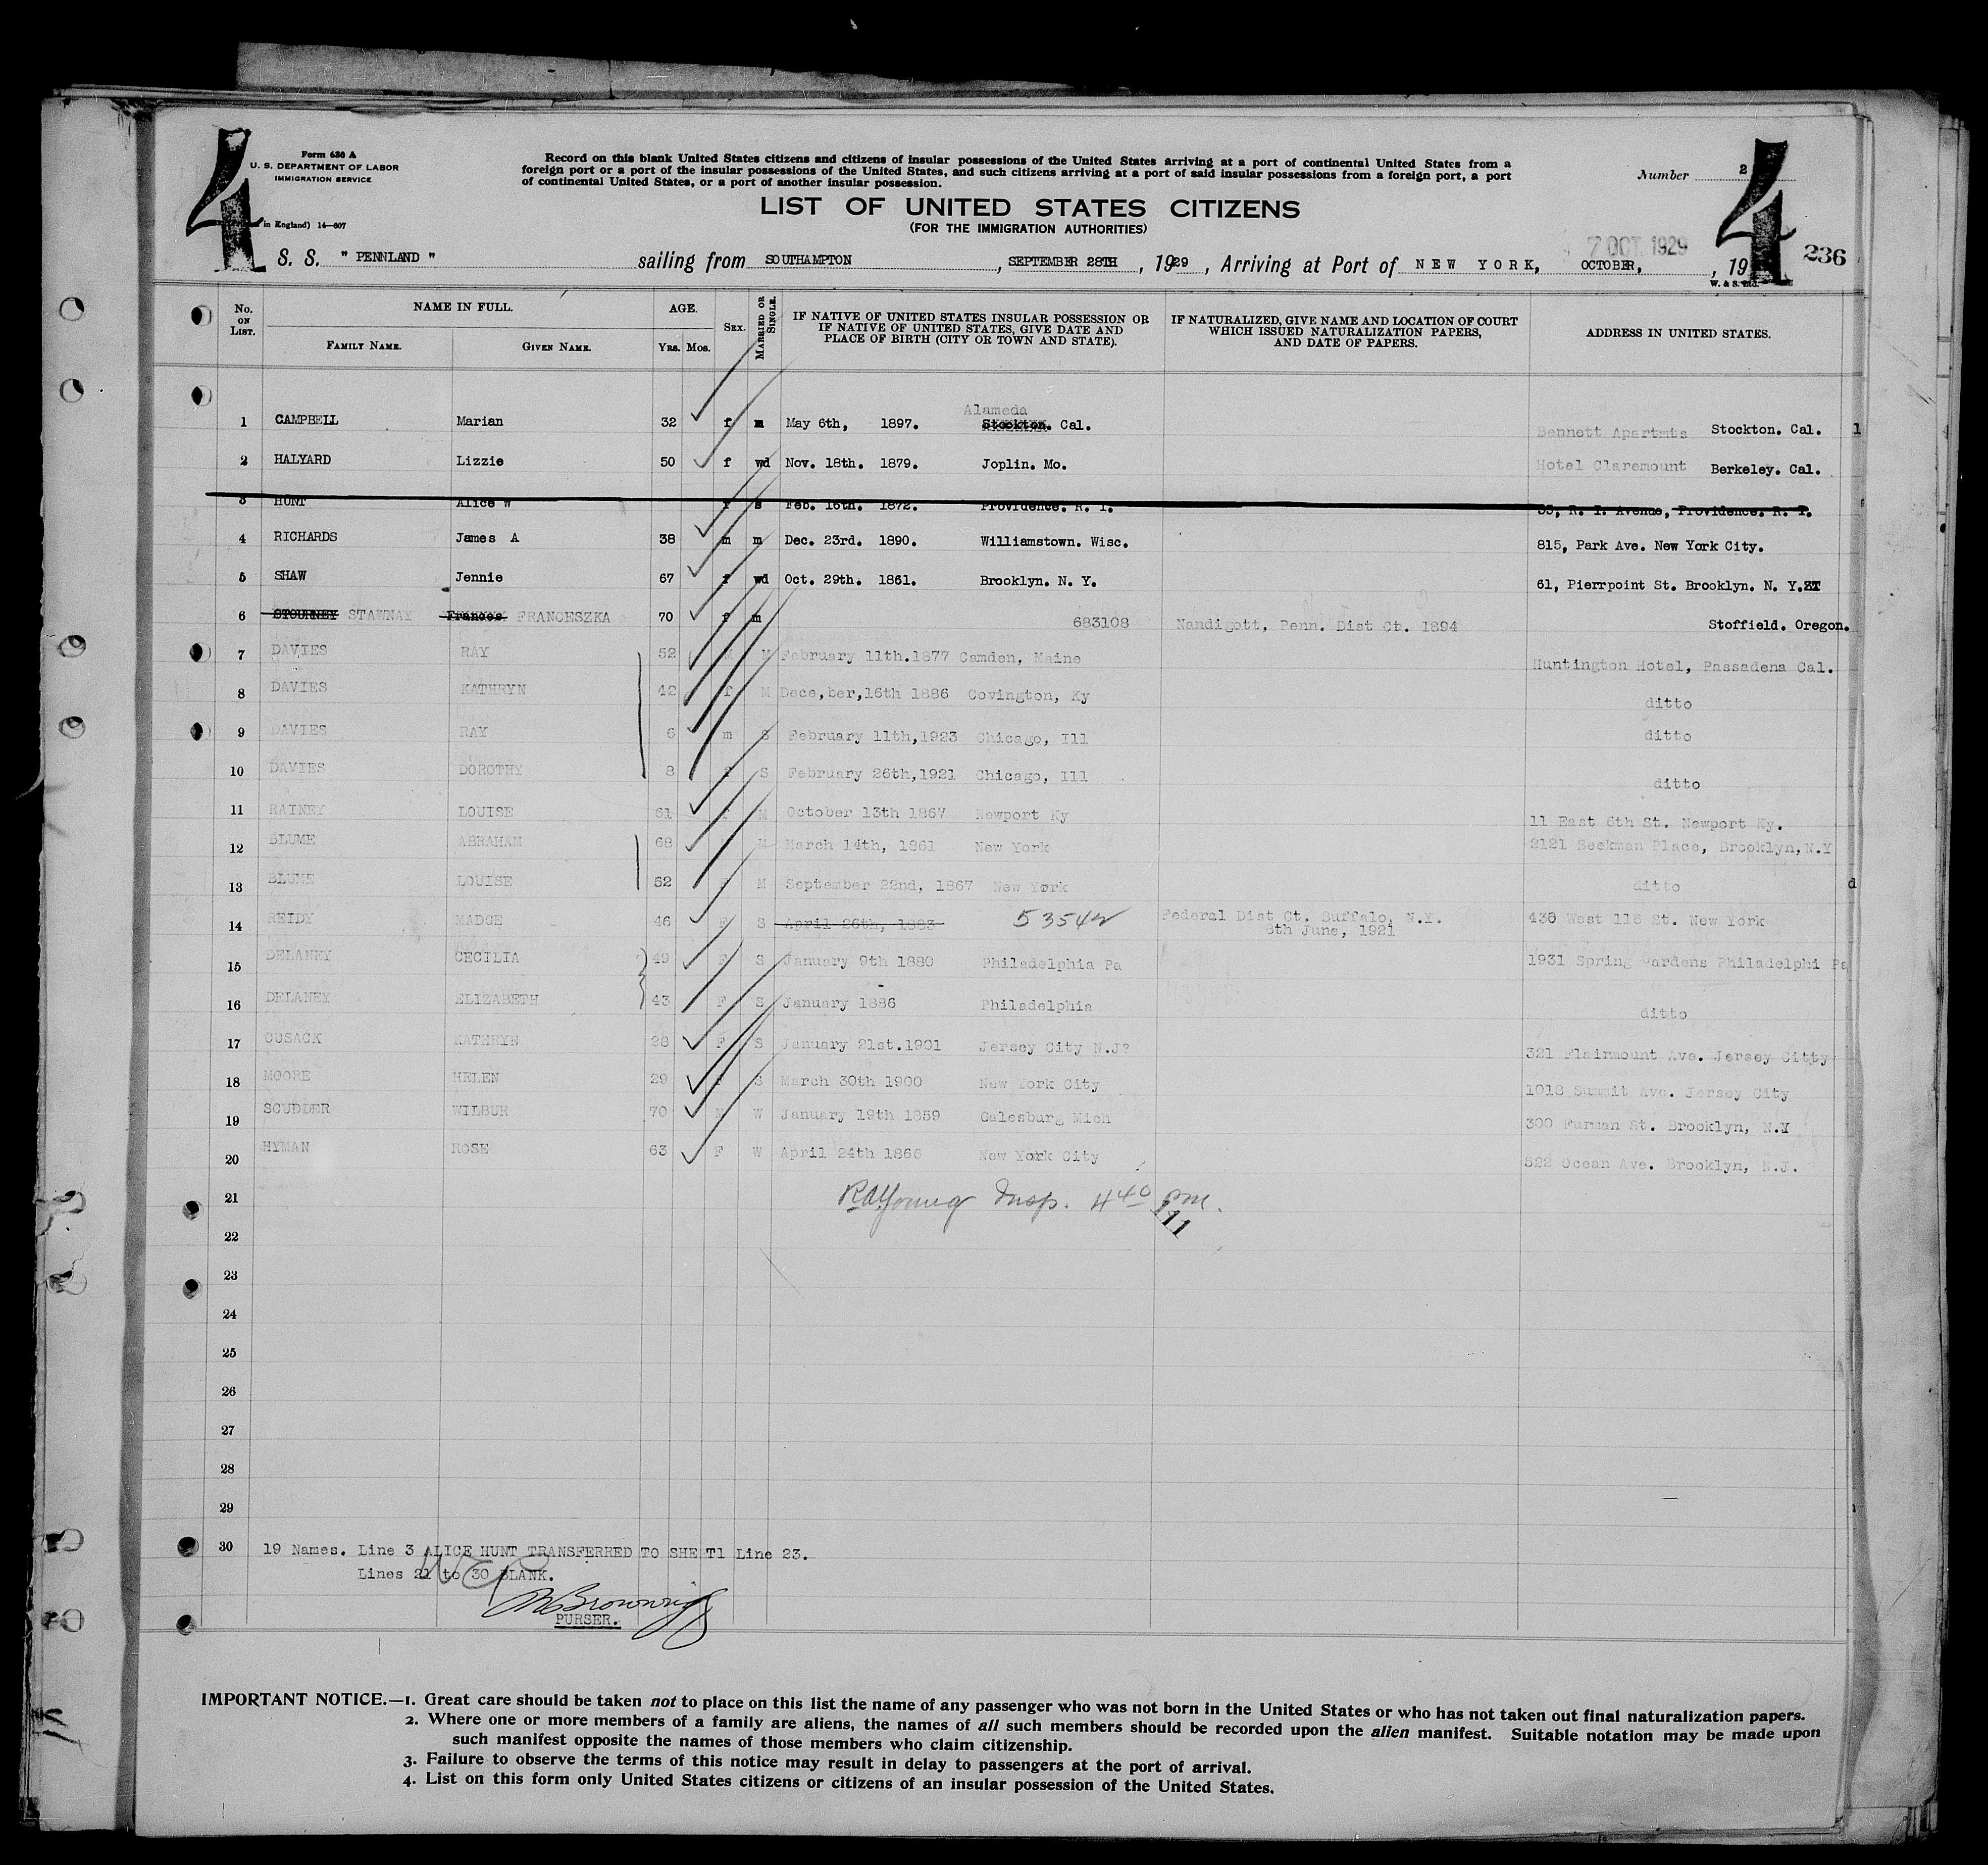 4 4
Form 630 A
U. S. DEPARTMENT OF LABOR
IMMIGRATION SERVICE
in England) 14—607
Record on this blank United States citizens and citizens of insular possessions of the United States arriving at a port of continental United States from a
foreign port or a port of the insular possessions of the United States, and such citizens arriving at a port of said insular possessions from a foreign port, a port
of continental United States, or a port of another insular possession.
Number 2
LIST OF UNITED STATES CITIZENS
(FOR THE IMMIGRATION AUTHORITIES)
7 OCT 1929
236
S. S. " PENNLAND " sailing from SOUTHAMPTON, SEPTEMBER 28TH, 1929, Arriving at Port of NEW YORK, OCTOBER, , 19
W. & S. Ltd.
No. ON LIST. NAME IN FULL. FAMILY NAME. GIVEN NAME. AGE. YRS. MOS. SEX. MARRIED OR SINGLE. IF NATIVE OF UNITED STATES INSULAR POSSESSION OR IF NATIVE OF UNITED STATES, GIVE DATE AND PLACE OF BIRTH (CITY OR TOWN AND STATE). IF NATURALIZED, GIVE NAME AND LOCATION OF COURT WHICH ISSUED NATURALIZATION PAPERS, AND DATE OF PAPERS. ADDRESS IN UNITED STATES.
Alameda
1 CAMPBELL Marian 32 f m May 6th, 1897. Stockton. Cal. Bennett Apartmts Stockton. Cal. 1
2 HALYARD Lizzie 50 f wd Nov. 18th. 1879. Joplin. Mo. Hotel Claremount Berkeley. Cal.
3 HUNT Alice W f s Feb. 16th. 1872. Providence. R. I. 55, R. I. Avenue, Providence. R. I.
4 RICHARDS James A 38 m m Dec. 23rd. 1890. Williamstown. Wisc. 815, Park Ave. New York City.
5 SHAW Jennie 67 f wd Oct. 29th. 1861. Brooklyn. N. Y. 61, Pierrpoint St. Brooklyn. N. Y.
6 STOURNEY STAWNAY Frances FRANCESZKA 70 f m 683108 Nandigott, Penn. Dist Ct. 1894 Stoffield. Oregon.
7 DAVIES RAY 52 M February 11th.1877 Camden, Maine Huntington Hotel, Passadena Cal.
8 DAVIES KATHRYN 42 f M Dece,ber,16th 1886 Covington, Ky ditto
9 DAVIES RAY 6 m S February 11th,1923 Chicago, Ill ditto
10 DAVIES DOROTHY 8 f S February 26th,1921 Chicago, Ill ditto
11 RAINEY LOUISE 61 M October 13th 1867 Newport Ky 11 East 6th St. Newport Ky.
12 BLUME ABRAHAM 68 M March 14th, 1861 New York 2121 Beekman Place, Brooklyn,N.Y
13 BLUME LOUISE 52 F M September 22nd, 1867 New York ditto d
14 REIDY MADGE 46 F S April 26th, 1883 53542 Federal Dist Ct. Buffalo, N.Y. 430 West 116 St. New York
8th June, 1921
15 DELANEY CECILIA 49 F S January 9th 1880 Philadelphia Pa 1931 Spring Gardens Philadelphi Pa
16 DELANEY ELIZABETH 43 F S January 1886 Philadelphia ditto
17 CUSACK KATHRYN 28 F S January 21st.1901 Jersey City N.J? 321 Flairmount Ave. Jersey Citty
18 MOORE HELEN 29 F S March 30th 1900 New York City 1018 Summit Ave. Jersey City
19 SCUDDER WILBUR 70 M W January 19th 1859 Galesburg Mich 300 Furman St. Brooklyn, N.Y
20 HYMAN ROSE 63 F W April 24th 1866 New York City 522 Ocean Ave. Brooklyn, N.J.
21 RAYoung Insp. 4 40 pm.
111
22
23
24
25
26
27
28
29
30 19 Names. Line 3 ALICE HUNT TRANSFERRED TO SHE T1 Line 23.
Lines 21 to 30 BLANK.
Browning
PURSER.
IMPORTANT NOTICE.—1. Great care should be taken not to place on this list the name of any passenger who was not born in the United States or who has not taken out final naturalization papers.
2. Where one or more members of a family are aliens, the names of all such members should be recorded upon the alien manifest. Suitable notation may be made upon
such manifest opposite the names of those members who claim citizenship.
3. Failure to observe the terms of this notice may result in delay to passengers at the port of arrival.
4. List on this form only United States citizens or citizens of an insular possession of the United States.